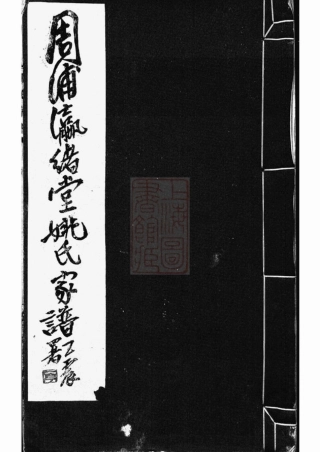 周浦瀛緒堂姚氏家譜
署
上海圖書館藏